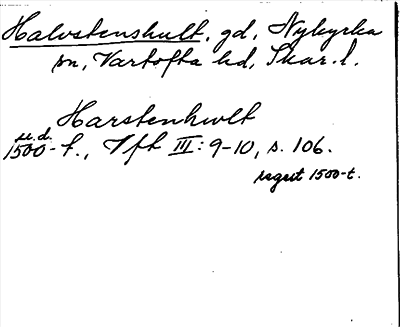 Halvstenshult, gd, Nykyrka
sn, Vartofta hd, Skar. l.
Harstenhwlt
u.d.
1500-t., Vft III: 9-10, s. 106.
regest 1500-t.